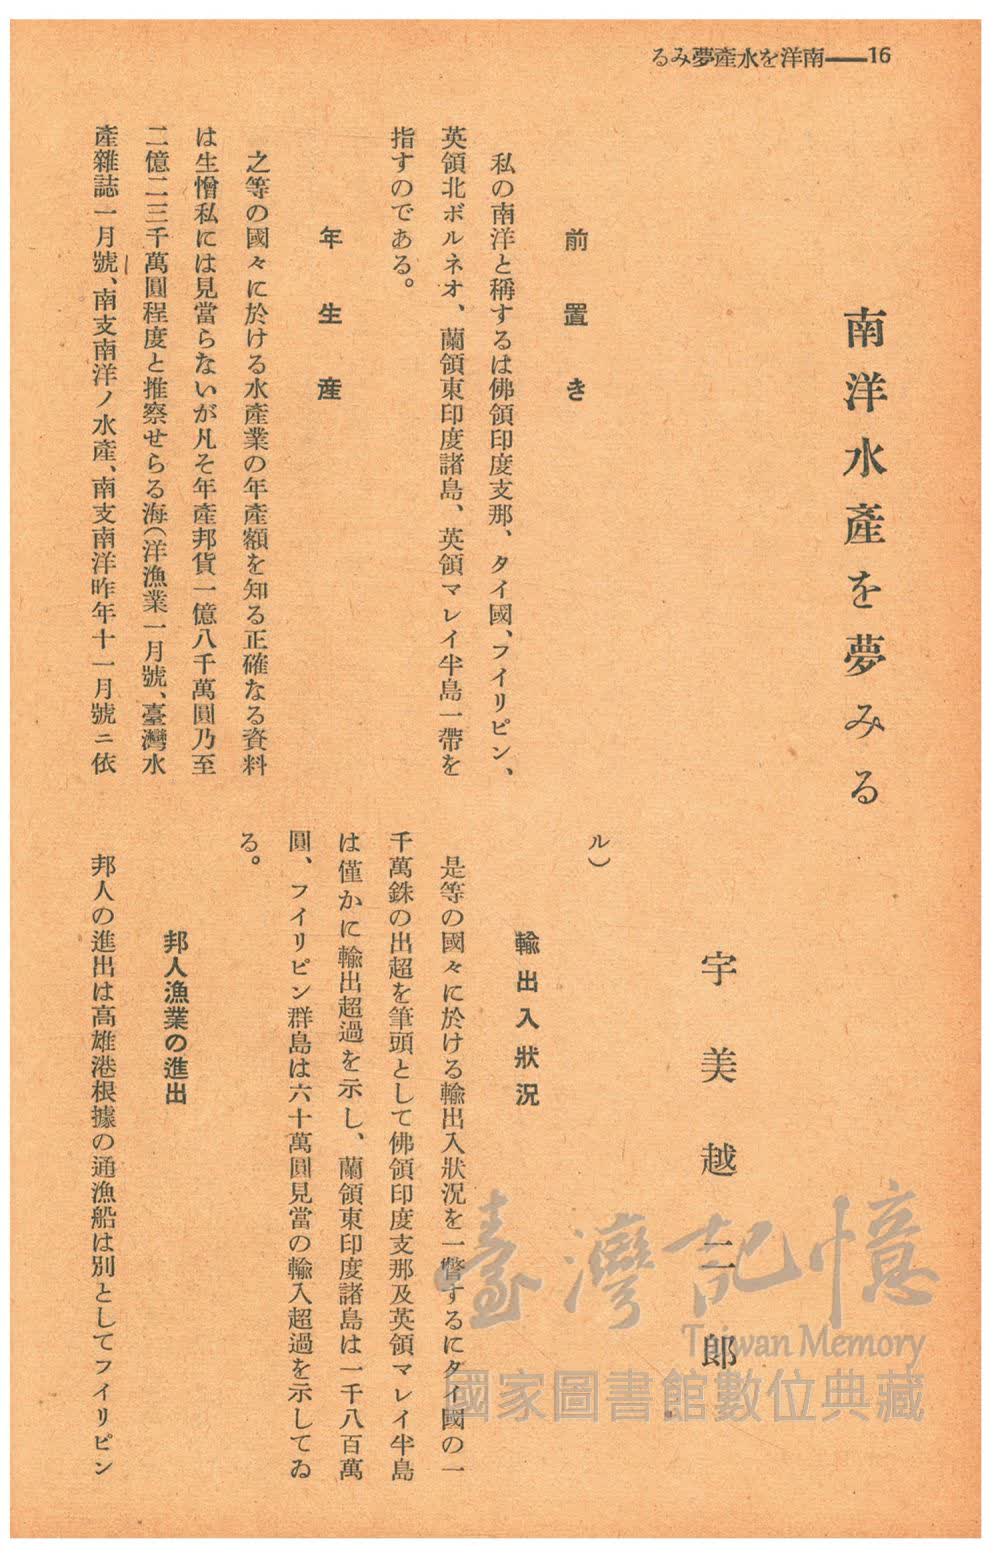 るみ夢產水を洋南――16
南洋水產を夢みる
宇美越二郎
前置き
私の南洋と稱するは佛領印度支那、タイ國、フイリピン、
英領北ボルネオ、蘭領東印度諸島、英領マレイ半島一帶を
指すのである。
年生産
之等の國々に於ける水產業の年產額を知る正確なる資料
は生憎私には見當らないが凡そ年產邦貨一億八千萬圓乃至
二億二三千萬圓程度と推察せらる海(洋漁業一月號、臺灣水
產雜誌一月號、南支南洋ノ水產、南支南洋昨年十一月號ニ依
ル)
輸出入狀況
是等の國々に於ける輸出入狀況を一瞥するにタイ國の一
千萬銖の出超を筆頭として佛領印度支那及英領マレイ半島
は僅かに輸出超過を示し、蘭領東印度諸島は一千八百萬
圓、フイリピン群島は六十萬圓見當の輸入超過を示してゐ
る。
邦人漁業の進出
邦人の進出は高雄港根據の通漁船は別としてフイリピン
臺灣記憶
Taiwan Memory
國家圖書館數位典藏